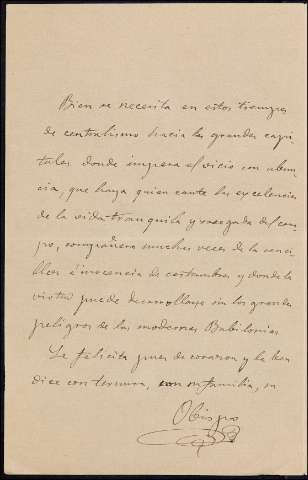 Bien se necesita en estos tiempos
de centralismo hacia las grandes capi-
tales donde impera el vicio con
cia, que haya quien cante las excelencias
de la vida tranquila y sosegada del cam-
po, compañera muchas veces de la senci-
llez é inocencia de costumbres y donde la
virtud puede desarrollarse sin los grandes
peligros de las modernas Babilonias.
Le felicita pues de corazon y le ben-
dice con ternura, con su familia, su
Obispo